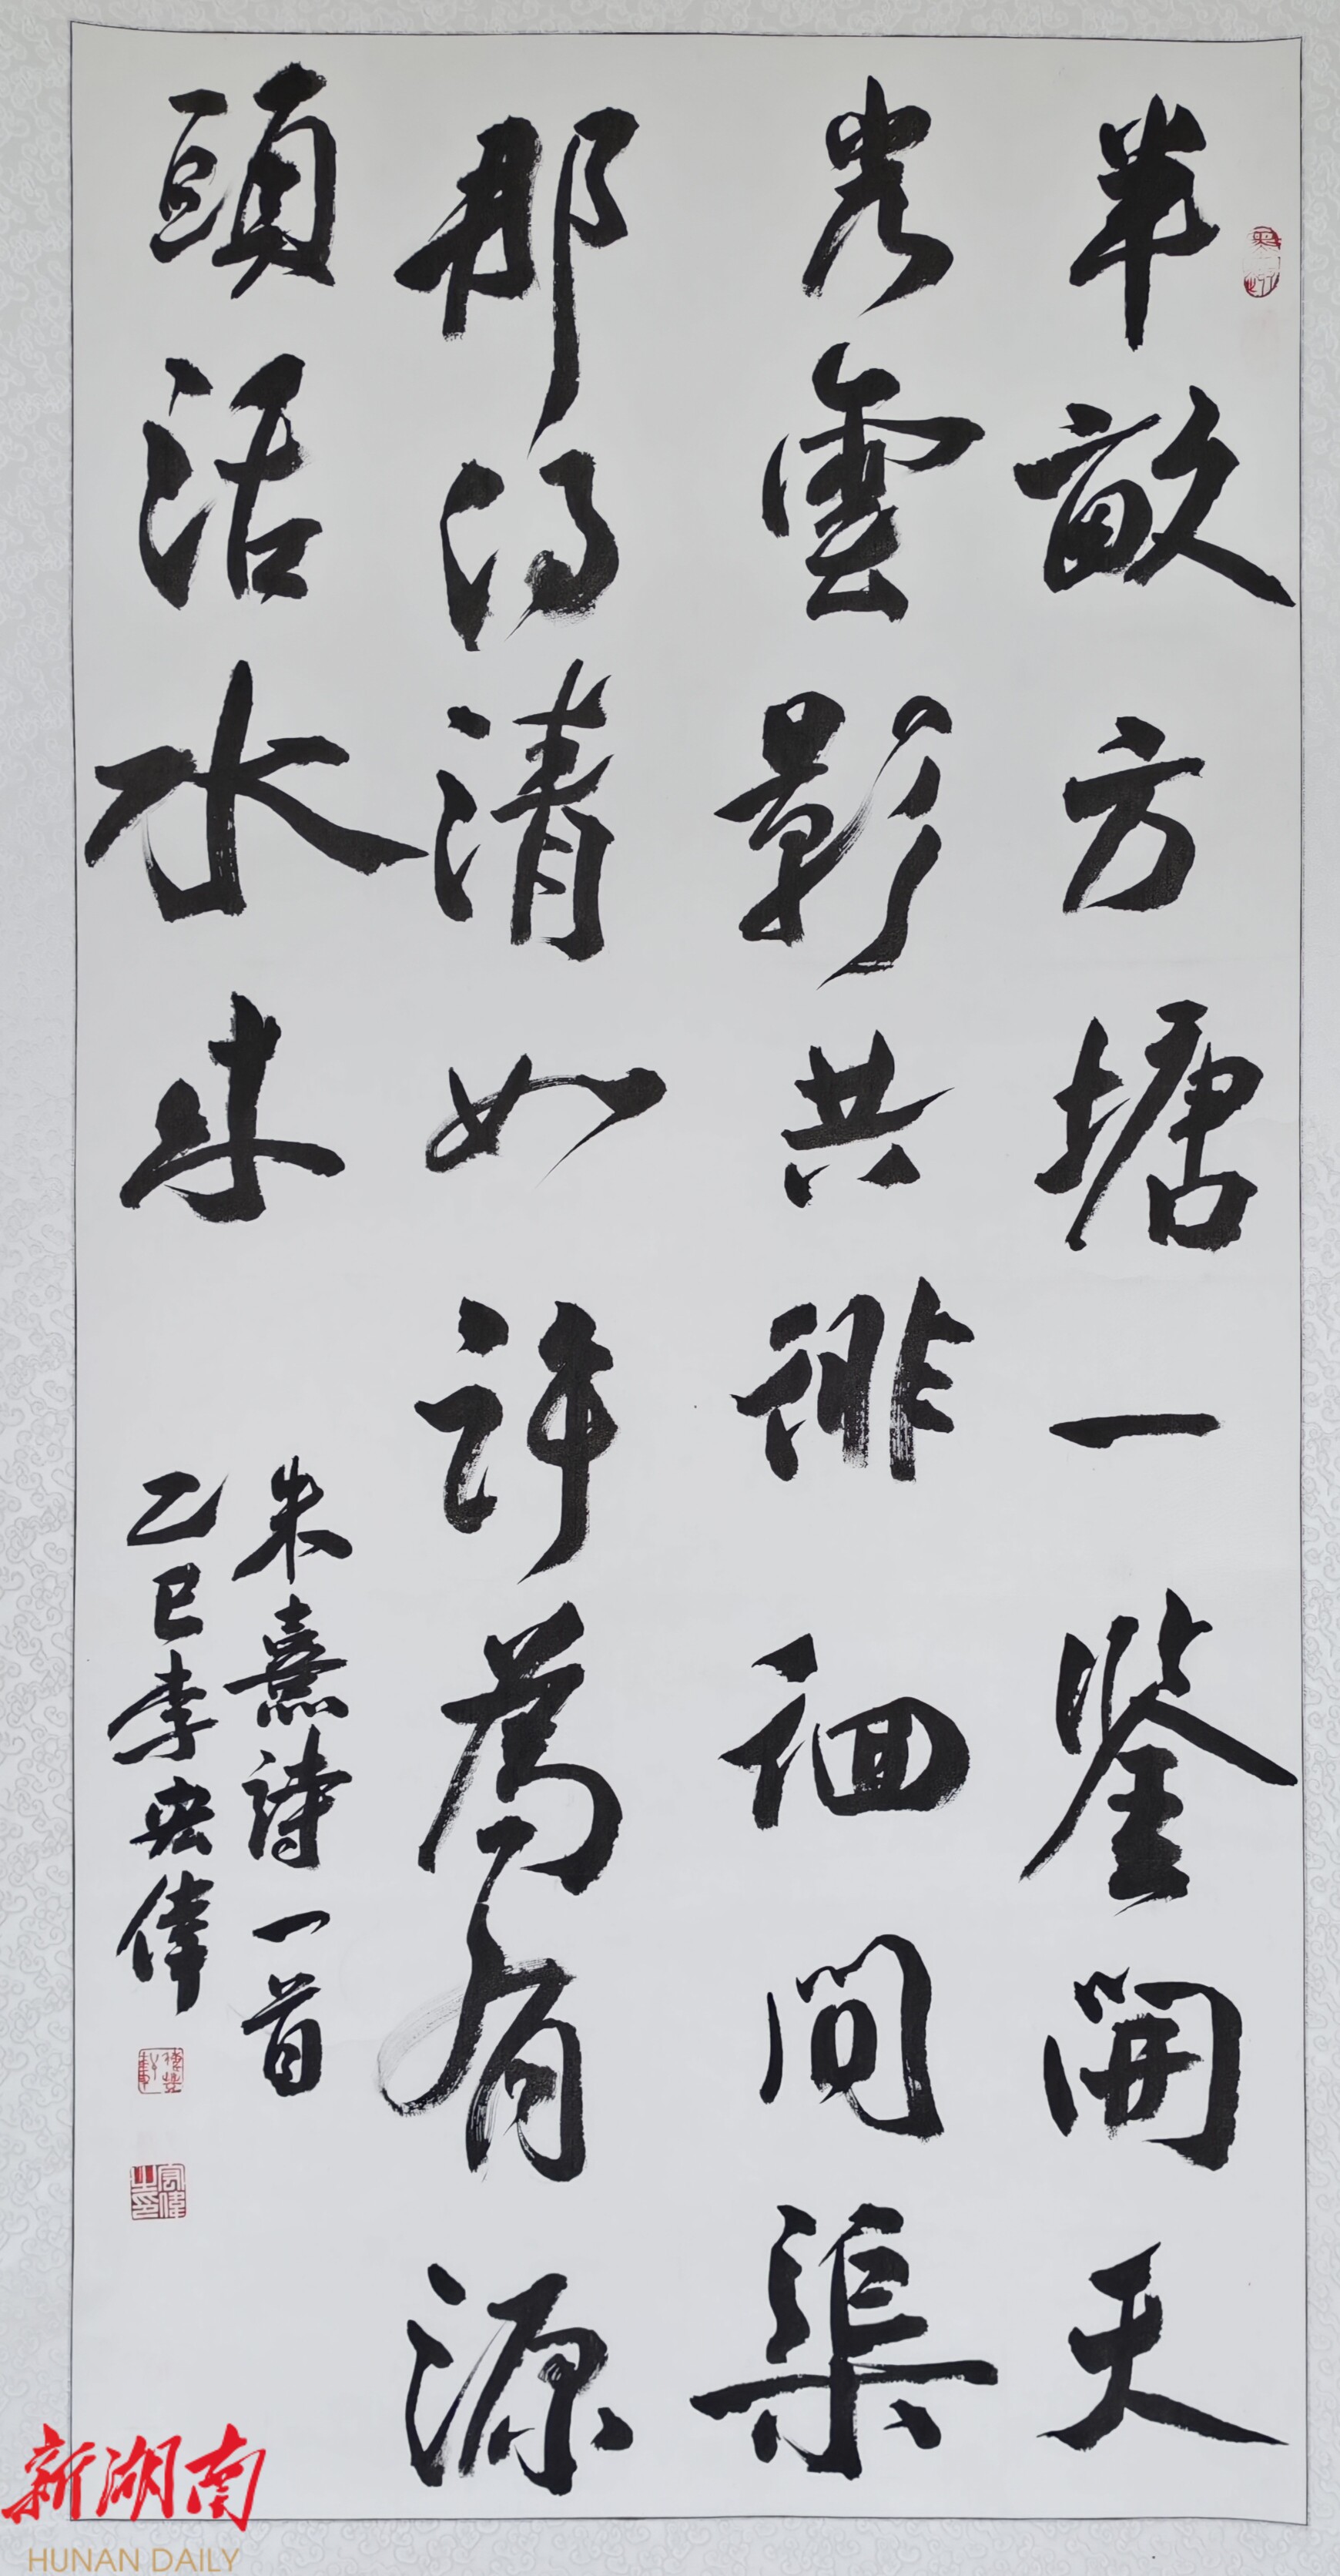 半畝方塘一鉴開天
光雲影共徘徊問渠
那得清如許為有源
頭活水来
朱熹詩一首
乙巳李宏偉
宏偉之印
新湖南
HUNAN DAILY